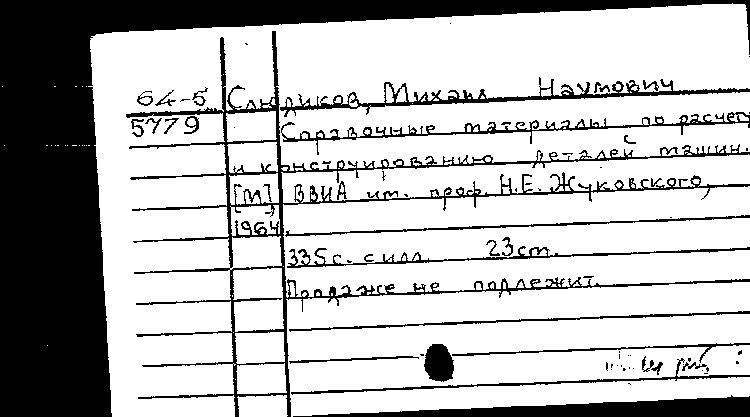 64-5 Слюдиков, Михаил Наумович
5779 Справочные материалы по расчету
и конструированию деталей машин.
[М], ВВИА им. проф. Н.Е. Жуковского,
1964.
335 с. с илл. 23 см.
Продаже не подлежит.